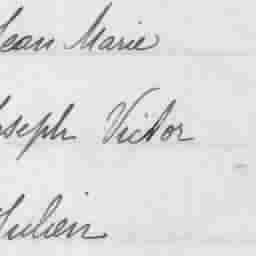 Jean Marie
Joseph Victor
Julien